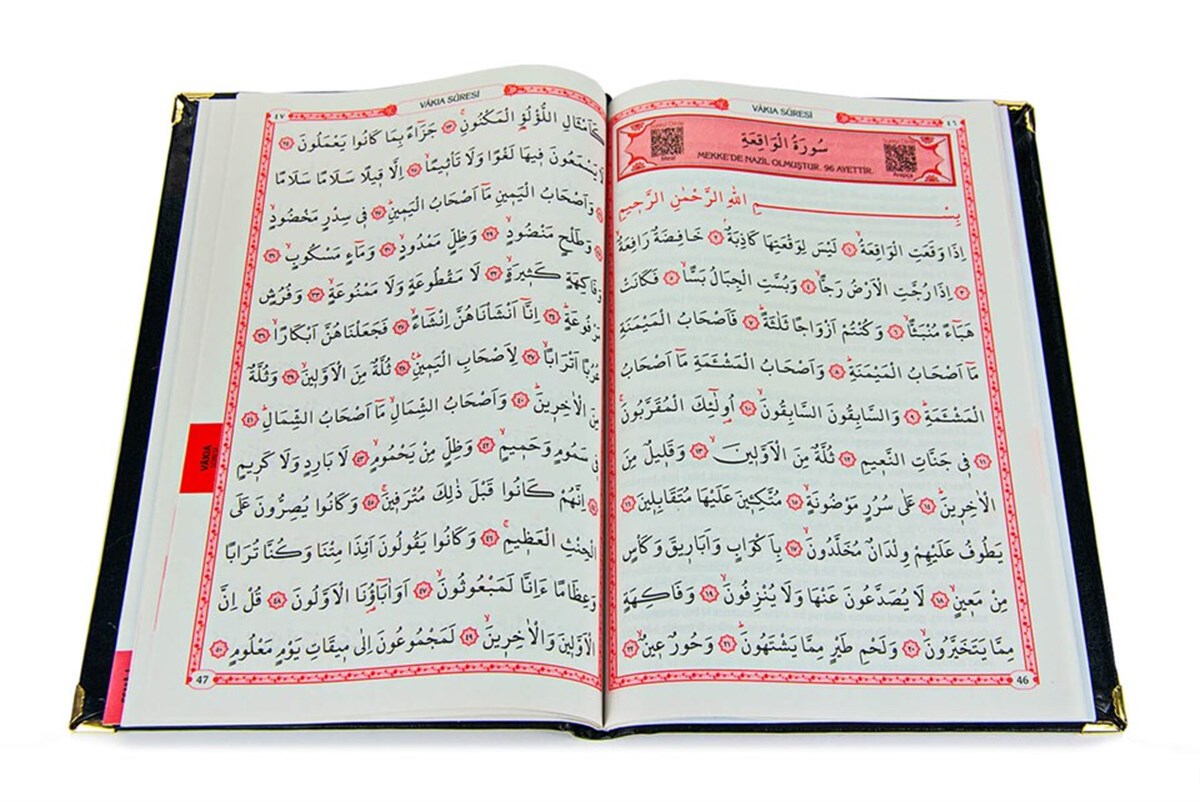 VÂKIA SÛRESİ
٤٦
سُورَةُ الْوَاقِعَةِ
MEKKE'DE NAZİL OLMUŞTUR. 96 AYETTİR.
Meal
Arapça
بِسْمِ اللّٰهِ الرَّحْمٰنِ الرَّحِيمِ
اِذَا وَقَعَتِ الْوَاقِعَةُۙ ﴿١﴾ لَيْسَ لِوَقْعَتِهَا كَاذِبَةٌۘ ﴿٢﴾ خَافِضَةٌ رَافِعَةٌۙ
﴿٣﴾ اِذَا رُجَّتِ الْاَرْضُ رَجًّاۙ ﴿٤﴾ وَبُسَّتِ الْجِبَالُ بَسًّاۙ ﴿٥﴾ فَكَانَتْ
هَبَٓاءً مُنْبَثًّاۙ ﴿٦﴾ وَكُنْتُمْ اَزْوَاجًا ثَلٰثَةًۜ ﴿٧﴾ فَاَصْحَابُ الْمَيْمَنَةِ
مَٓا اَصْحَابُ الْمَيْمَنَةِۜ ﴿٨﴾ وَاَصْحَابُ الْمَشْـَٔمَةِ مَٓا اَصْحَابُ
الْمَشْـَٔمَةِۜ ﴿٩﴾ وَالسَّابِقُونَ السَّابِقُونَۙ ﴿١٠﴾ اُو۬لٰٓئِكَ الْمُقَرَّبُونَۚ
﴿١١﴾ فِي جَنَّاتِ النَّعِيمِ ﴿١٢﴾ ثُلَّةٌ مِنَ الْاَوَّلِينَۙ ﴿١٣﴾ وَقَلِيلٌ مِنَ
الْاٰخِرِينَۜ ﴿١٤﴾ عَلٰى سُرُرٍ مَوْضُونَةٍۙ ﴿١٥﴾ مُتَّكِـ۪ٔينَ عَلَيْهَا مُتَقَابِلِينَ ﴿١٦﴾
يَطُوفُ عَلَيْهِمْ وِلْدَانٌ مُخَلَّدُونَۙ ﴿١٧﴾ بِاَكْوَابٍ وَاَبَارِيقَ وَكَأْسٍ
مِنْ مَعِينٍۙ ﴿١٨﴾ لَا يُصَدَّعُونَ عَنْهَا وَلَا يُنْزِفُونَۙ ﴿١٩﴾ وَفَاكِهَةٍ
مِمَّا يَتَخَيَّرُونَۙ ﴿٢٠﴾ وَلَحْمِ طَيْرٍ مِمَّا يَشْتَهُونَۜ ﴿٢١﴾ وَحُورٌ عِينٌۙ ﴿٢٢﴾
46
VÂKIA SÛRESİ
٤٧
كَاَمْثَالِ اللُّؤْلُؤِ۬ الْمَكْنُونِۚ ﴿٢٣﴾ جَزَٓاءً بِمَا كَانُوا يَعْمَلُونَ ﴿٢٤﴾
لَا يَسْمَعُونَ فِيهَا لَغْوًا وَلَا تَأْثِيمًاۙ ﴿٢٥﴾ اِلَّا قِيلًا سَلَامًا سَلَامًا
﴿٢٦﴾ وَاَصْحَابُ الْيَمِينِ مَٓا اَصْحَابُ الْيَمِينِۜ ﴿٢٧﴾ فِي سِدْرٍ مَخْضُودٍۙ
﴿٢٨﴾ وَطَلْحٍ مَنْضُودٍۙ ﴿٢٩﴾ وَظِلٍّ مَمْدُودٍۙ ﴿٣٠﴾ وَمَٓاءٍ مَسْكُوبٍۙ ﴿٣١﴾
وَفَاكِهَةٍ كَثِيرَةٍۙ ﴿٣٢﴾ لَا مَقْطُوعَةٍ وَلَا مَمْنُوعَةٍۙ ﴿٣٣﴾ وَفُرُشٍ
مَرْفُوعَةٍۜ ﴿٣٤﴾ اِنَّٓا اَنْشَأْنَاهُنَّ اِنْشَٓاءًۙ ﴿٣٥﴾ فَجَعَلْنَاهُنَّ اَبْكَارًاۙ ﴿٣٦﴾
عُرُبًا اَتْرَابًاۙ ﴿٣٧﴾ لِاَصْحَابِ الْيَمِينِۜ ﴿٣٨﴾ ثُلَّةٌ مِنَ الْاَوَّلِينَۙ ﴿٣٩﴾ وَثُلَّةٌ
مِنَ الْاٰخِرِينَۜ ﴿٤٠﴾ وَاَصْحَابُ الشِّمَالِ مَٓا اَصْحَابُ الشِّمَالِۜ ﴿٤١﴾
فِي سَمُومٍ وَحَمِيمٍۙ ﴿٤٢﴾ وَظِلٍّ مِنْ يَحْمُومٍۙ ﴿٤٣﴾ لَا بَارِدٍ وَلَا كَرِيمٍ
﴿٤٤﴾ اِنَّهُمْ كَانُوا قَبْلَ ذٰلِكَ مُتْرَفِينَۚ ﴿٤٥﴾ وَكَانُوا يُصِرُّونَ عَلَى
الْحِنْثِ الْعَظِيمِۚ ﴿٤٦﴾ وَكَانُوا يَقُولُونَ اَئِذَا مِتْنَا وَكُنَّا تُرَابًا
وَعِظَامًا ءَاِنَّا لَمَبْعُوثُونَۙ ﴿٤٧﴾ اَوَاٰبَٓاؤُ۬نَا الْاَوَّلُونَ ﴿٤٨﴾ قُلْ اِنَّ
الْاَوَّلِينَ وَالْاٰخِرِينَۙ ﴿٤٩﴾ لَمَجْمُوعُونَ اِلٰى مِيقَاتِ يَوْمٍ مَعْلُومٍ ﴿٥٠﴾
47
VÂKIA